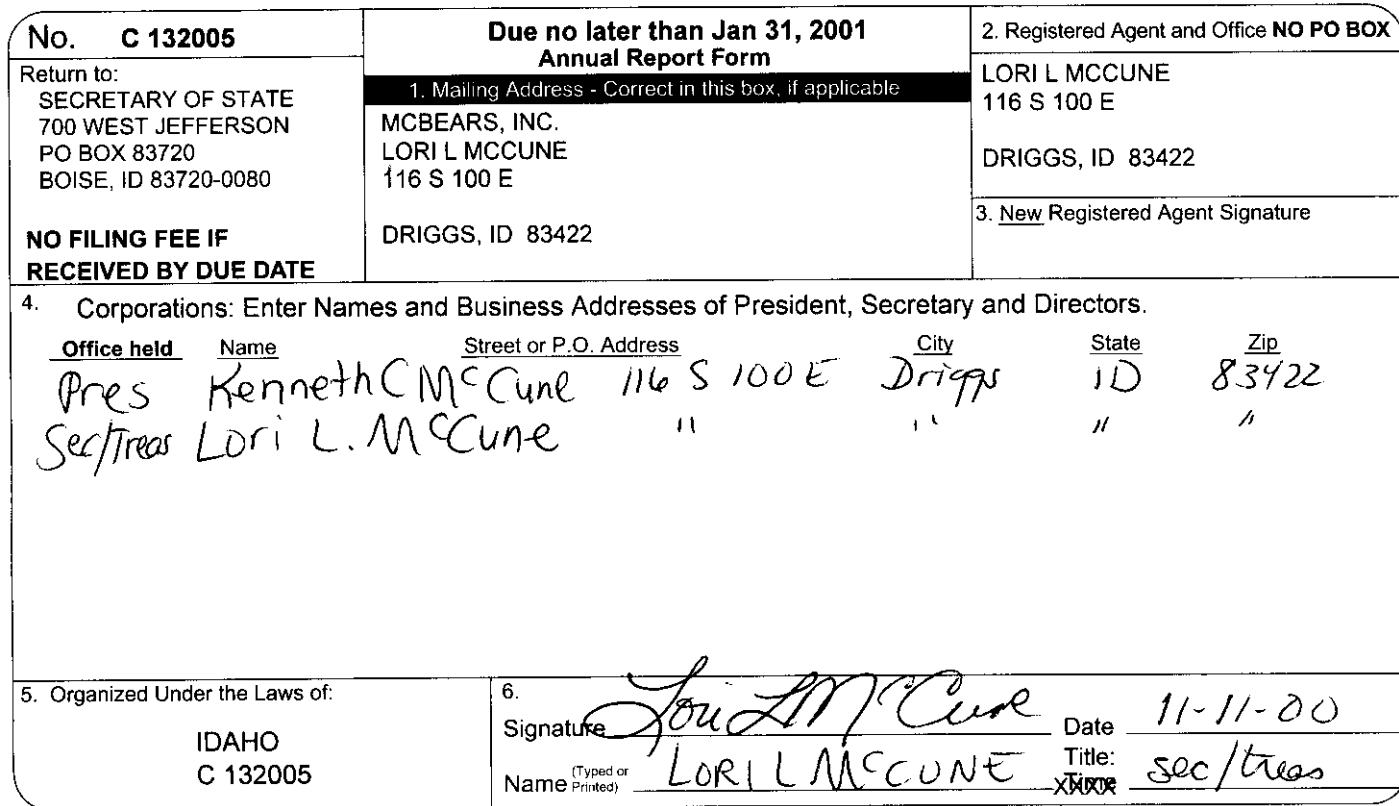 No. C 132005
Return to:
SECRETARY OF STATE
700 WEST JEFFERSON
PO BOX 83720
BOISE, ID 83720-0080
NO FILING FEE IF
RECEIVED BY DUE DATE
Due no later than Jan 31, 2001
Annual Report Form
1. Mailing Address - Correct in this box, if applicable
MCBEARS, INC.
LORI L MCCUNE
116 S 100 E
DRIGGS, ID 83422
2. Registered Agent and Office NO PO BOX
LORI L MCCUNE
116 S 100 E
DRIGGS, ID 83422
3. New Registered Agent Signature
4. Corporations: Enter Names and Business Addresses of President, Secretary and Directors.
Office held Name Street or P.O. Address City State Zip
Pres Kenneth C McCune 116 S 100 E Driggs ID 83422
Sec/Treas Lori L. McCune " " " "
5. Organized Under the Laws of:
IDAHO
C 132005
6.
Signature Lori L McCune Date 11-11-00
Name (Typed or Printed) LORI L MCCUNE Title: sec/treas